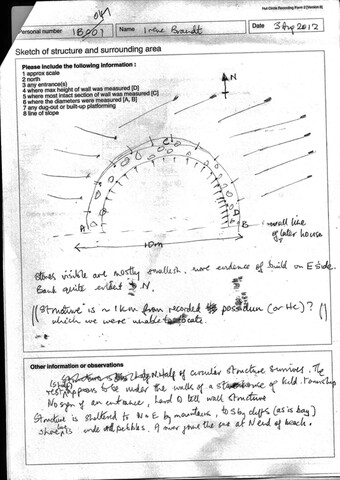 Hut Circle Recording Form 2 [Version 8]
Personal number 1B001 Name Irene Brandt Date 3 Aug 2012
Sketch of structure and surrounding area
Please include the following information :
1 approx scale
2 north
3 any entrance(s)
4 where max height of wall was measured [D]
5 where most intact section of wall was measured [C]
6 where the diameters were measured [A, B]
7 any dug-out or built-up platforming
8 line of slope
N
C
D
A
B
10m
wall line
of later house
Stones visible are mostly smallish, more evidence of build on E side.
Bank quite evident N.
"Structure" is ~ 1km from recorded position (or HC)?
which we were unable to locate.
Other information or observations
Only N. Half of circular structure survives. The
rest appears to be under the walls of a house of
No sign of an entrance, hard to tell wall structure
Structure is sheltered to N & E by mountains, to S by cliffs (as is bay)
shore is pebbles. A river joins the sea at N end of beach.